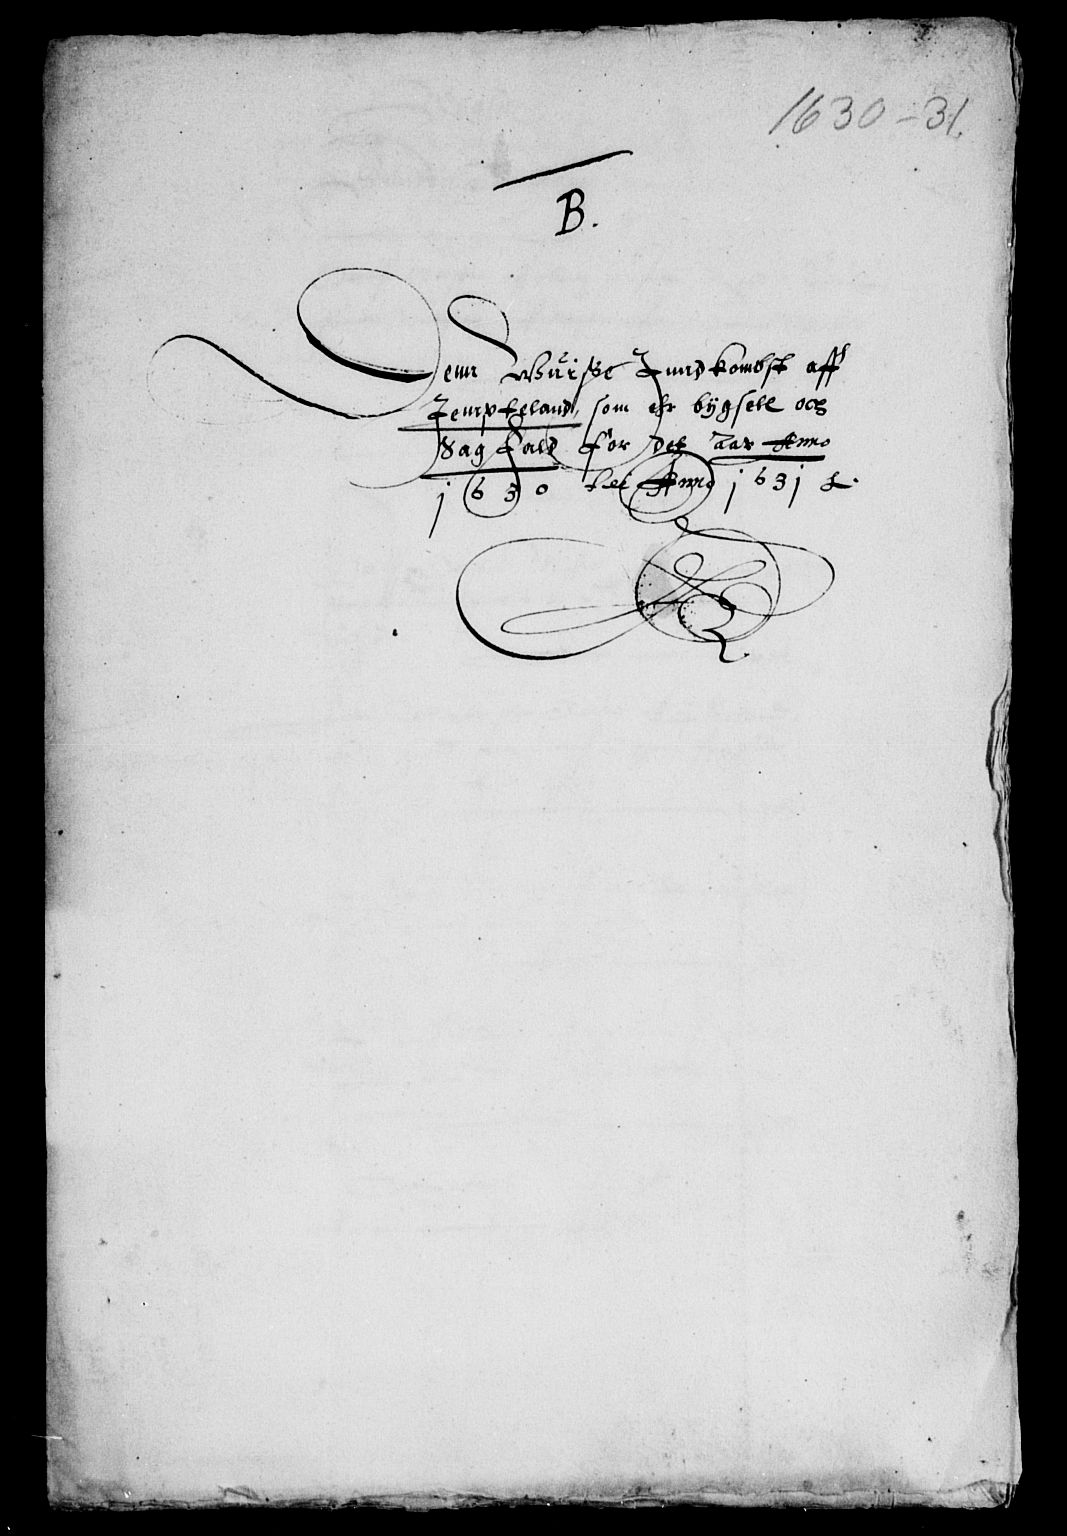 1630-31.
B.
Denn Wuiße Inndkombst aff
Jempteland, som ehr bÿgsell och
Sagfald for det Aar Anno
1630 till Anno 1631